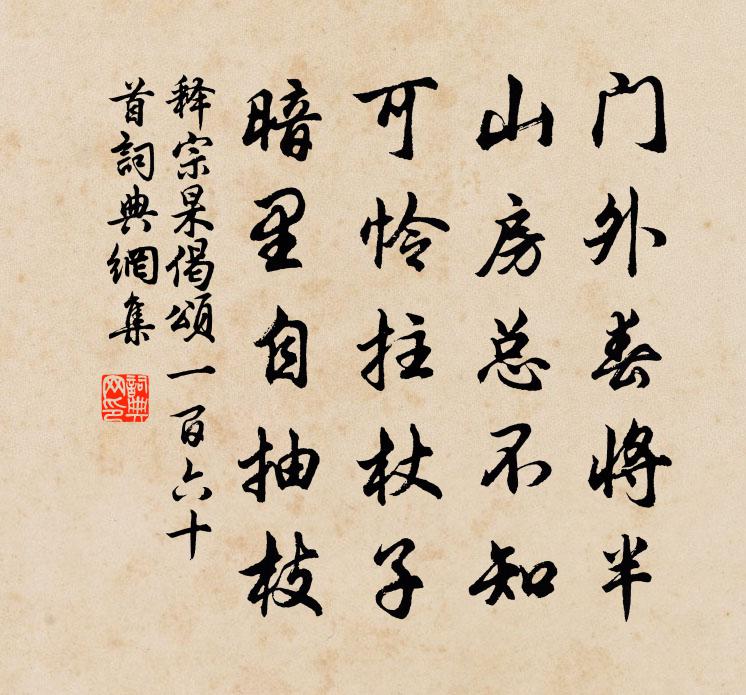 门外春将半
山房总不知
可怜拄杖子
暗里自抽枝
释宗杲偈颂一百六十
首詞典網集
詞典
网印